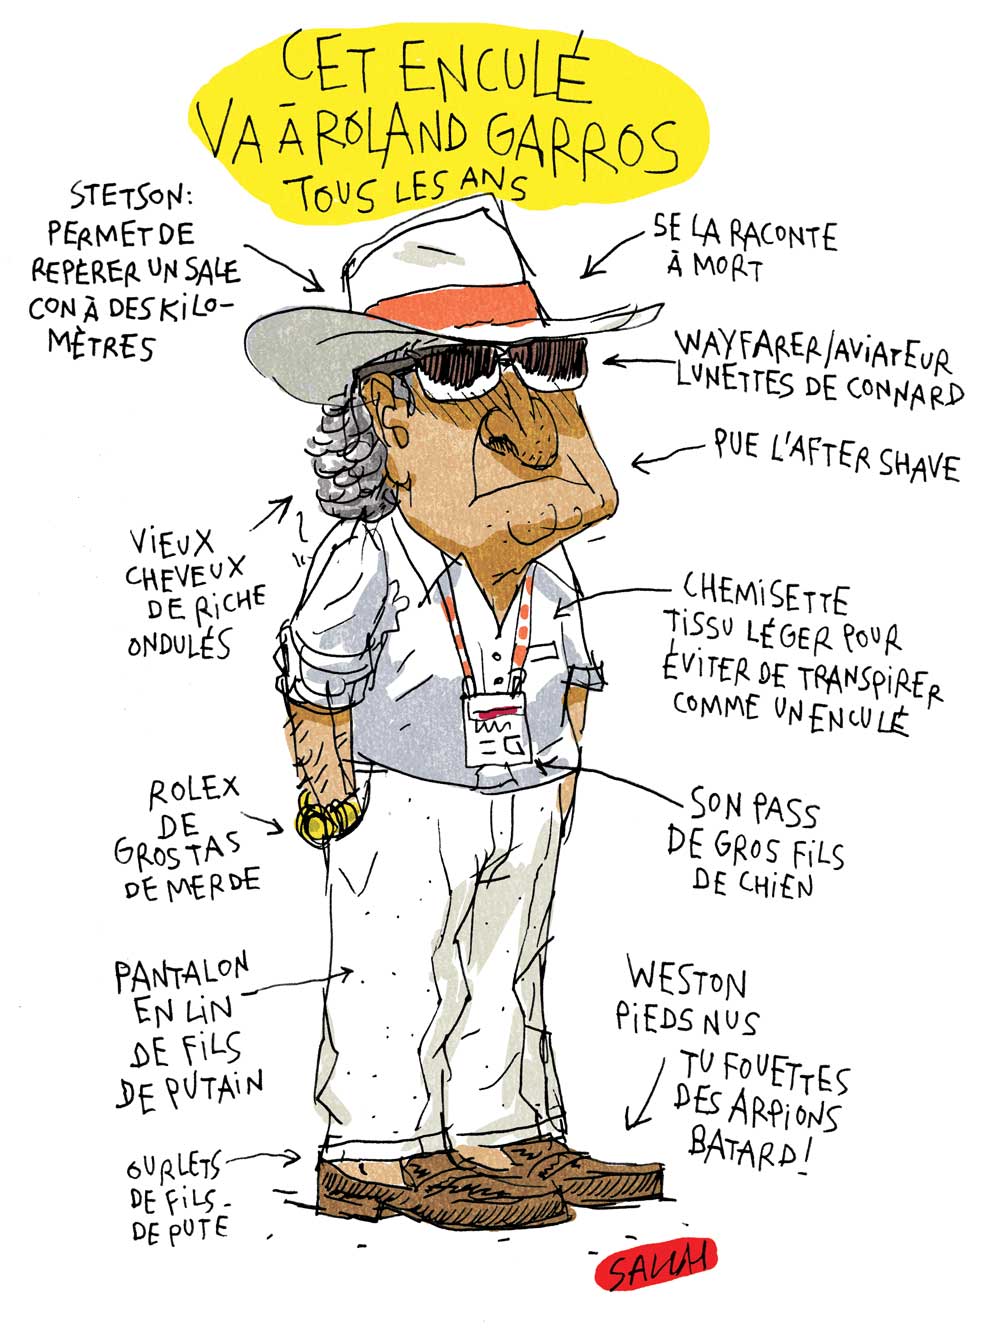 CET ENCULÉ
VA À ROLAND GARROS
TOUS LES ANS
STETSON:
PERMET DE
REPÈRER UN SALE
CON À DES KILO-
MÈTRES
SE LA RACONTE
À MORT
WAYFARER/AVIATEUR
LUNETTES DE CONNARD
PUE L'AFTER SHAVE
VIEUX
CHEVEUX
DE RICHE
ONDULÉS
CHEMISETTE
TISSU LÉGER POUR
ÉVITER DE TRANSPIRER
COMME UN ENCULÉ
ROLEX
DE
GROS TAS
DE MERDE
SON PASS
DE GROS FILS
DE CHIEN
PANTALON
EN LIN
DE FILS
DE PUTAIN
WESTON
PIEDS NUS
TU FOUETTES
DES ARPIONS
BATARD!
OURLETS
DE FILS-
DE PUTE